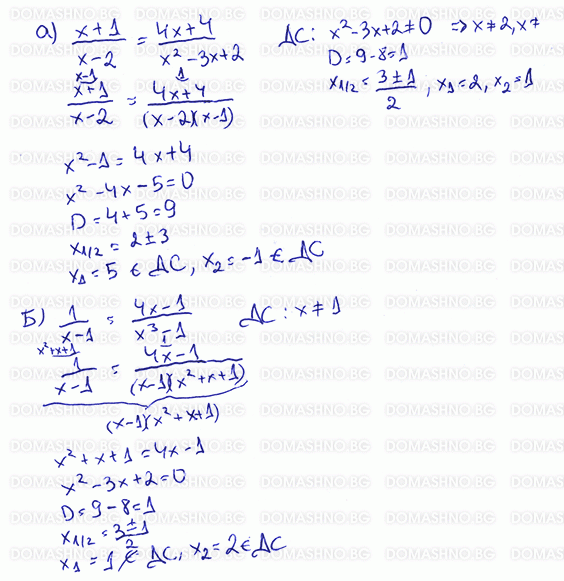 а) (x+1)/(x-2) = (4x+4)/(x²-3x+2) ДС: x²-3x+2≠0 ⇒ x≠2, x≠
D=9-8=1
x1/2 = (3±1)/2, x1=2, x2=1
x-1 1
(x+1)/(x-2) = (4x+4)/((x-2)(x-1))
x²-1=4x+4
x²-4x-5=0
D=4+5=9
x1/2=2±3
x1=5 ∈ ДС, x2=-1 ∈ ДС
Б) 1/(x-1) = (4x-1)/(x³-1) ДС: x≠1
x²+x+1 1
1/(x-1) = (4x-1)/((x-1)(x²+x+1))
(x-1)(x²+x+1)
x²+x+1=4x-1
x²-3x+2=0
D=9-8=1
x1/2=(3±1)/2
x1=1 ∉ ДС, x2=2 ∈ ДС
DOMASHNO.BG